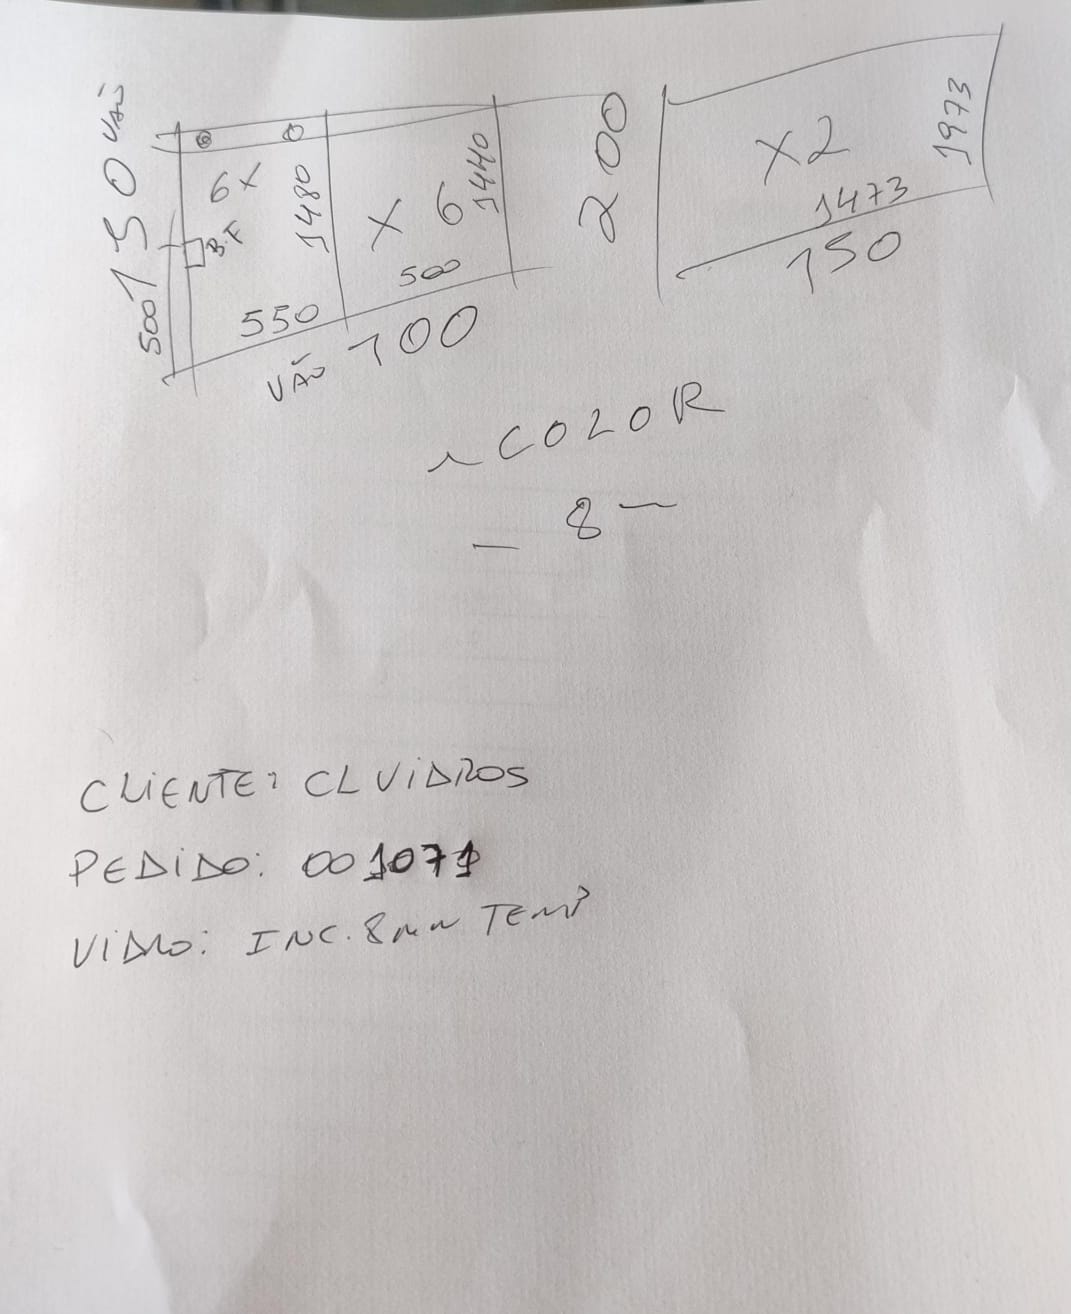 VÃO
150
500
6X
B.F
1480
550
X 6
1440
500
VÃO 100
200
X2
1973
1473
150
INCOLOR
- 8 -
CLIENTE: CL VIDROS
PEDIDO: 001071
VIDRO: INC. 8mm TEMP